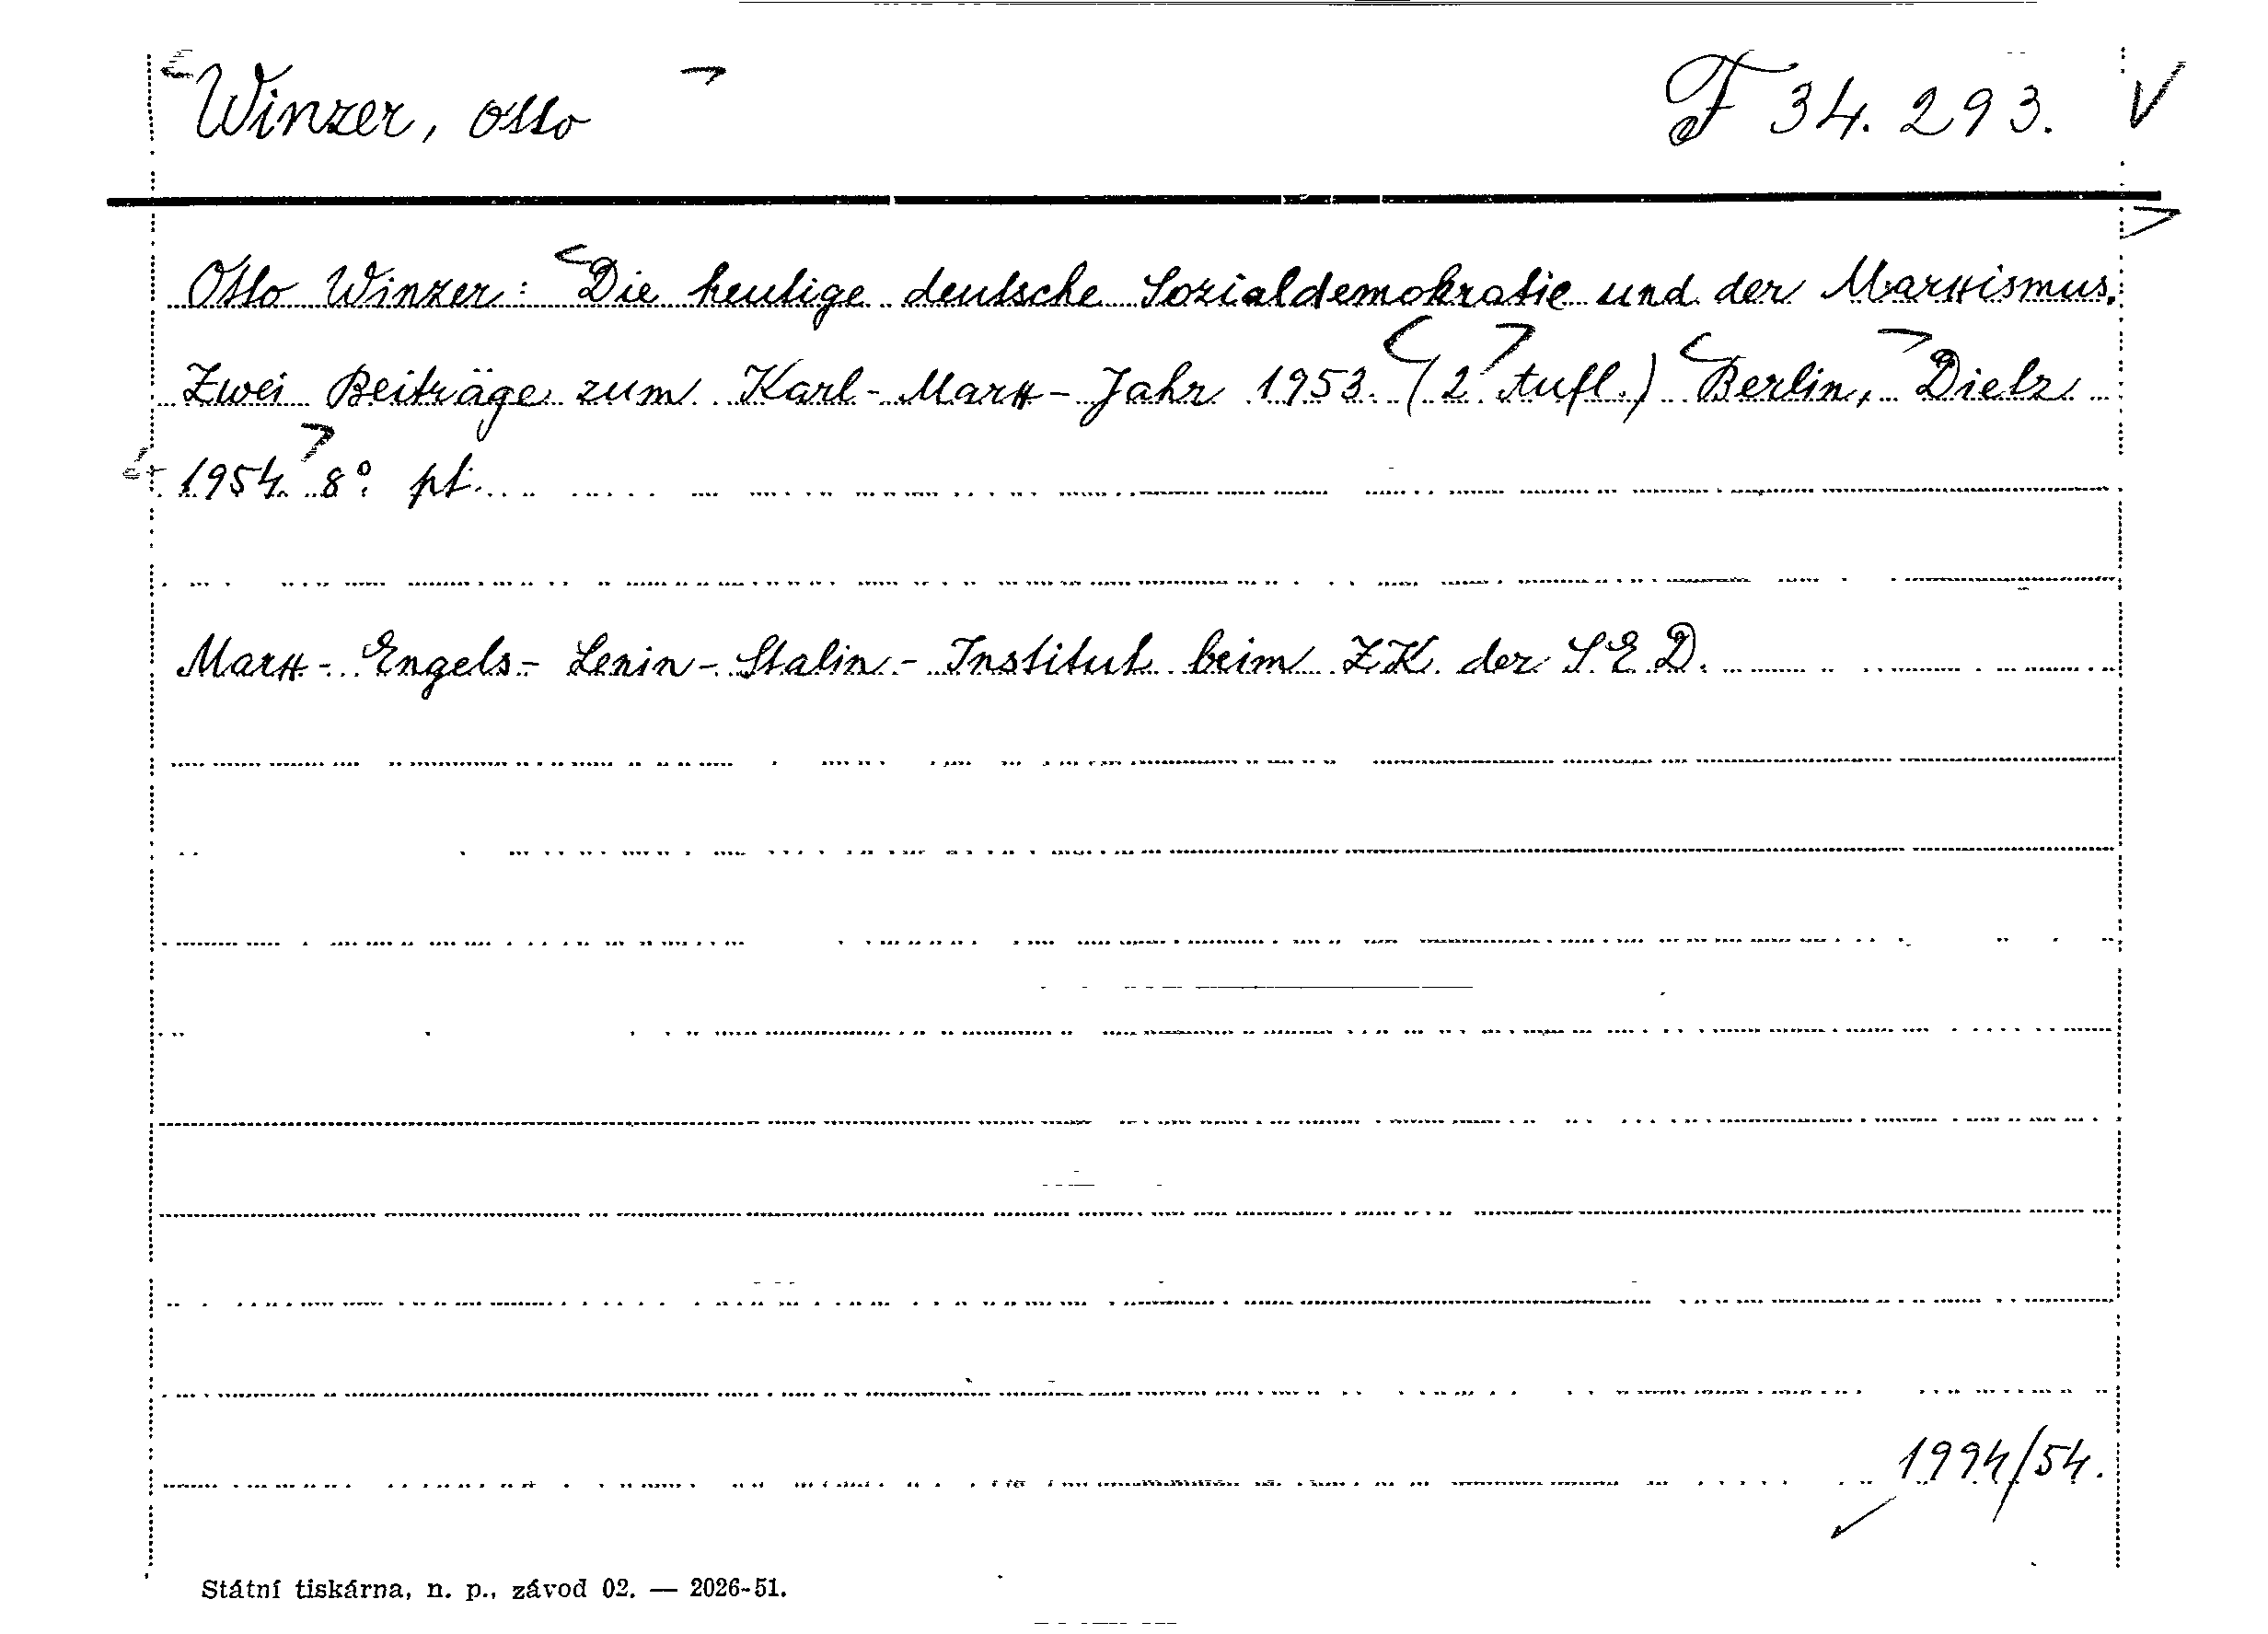 Winzer, Otto F 34.293. V
Otto Winzer: Die heutige deutsche Sozialdemokratie und der Marxismus.
Zwei Beiträge zum Karl-Marx-Jahr 1953. (2. Aufl.) Berlin, Dietz
1954. 8° pt.
Marx-Engels-Lenin-Stalin-Institut beim ZK. der S.E.D.
1994/54.
Státní tiskárna, n. p., závod 02. — 2026-51.